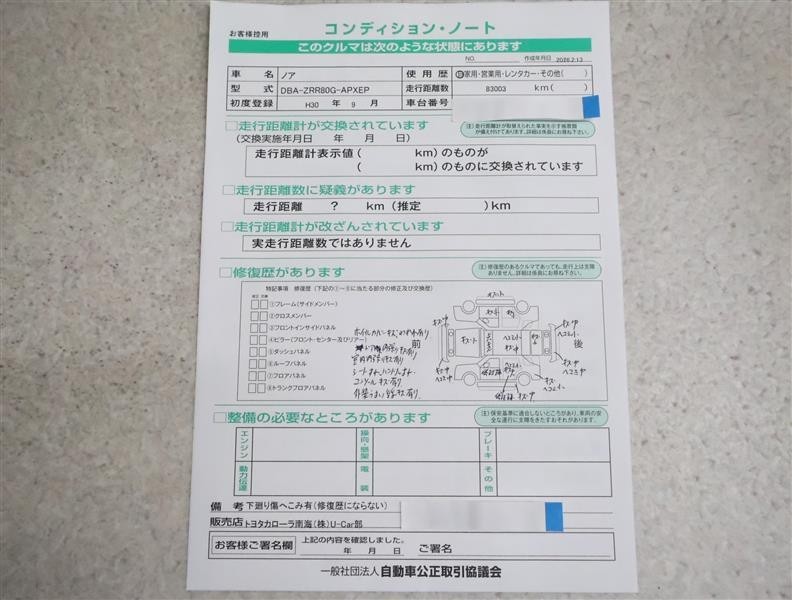 お客様控用
コンディション・ノート
このクルマは次のような状態にあります
NO. 作成年月日 2026.2.13
車名 ノア 使用歴 自家用・営業用・レンタカー・その他( )
型式 DBA-ZRR80G-APXEP 走行距離数 83003 km( )
初度登録 H30 年 9 月 車台番号
□走行距離計が交換されています
(注)走行距離計が取替えられた事実を示す帳票類が備え付けてあります。詳細は係員にお尋ね下さい。
(交換実施年月日 年 月 日)
走行距離計表示値( km)のものが
( km)のものに交換されています
□走行距離数に疑義があります
走行距離 ? km(推定 )km
□走行距離計が改ざんされています
実走行距離数ではありません
□修復歴があります
(注)修復歴のあるクルマであっても、走行上は支障ありません。詳細は係員にお尋ね下さい。
特記事項 修復歴(下記の①~⑧に当たる部分の修正及び交換歴)
修正 交換
①フレーム(サイドメンバー)
②クロスメンバー
③フロントインサイドパネル
④ピラー(フロント・センター及びリアー)
⑤ダッシュパネル
⑥ルーフパネル
⑦フロアパネル
⑧トランクフロアパネル
ホイルカバーキズ
前
後
コンソール キズ有り
□整備の必要なところがあります
(注)保安基準に適合しないところがあり、車両の安全な運行に支障をきたすおそれがあります。
エンジン 操向・懸架 ブレーキ
動力伝達 電装 その他
備考 下廻り傷へこみ有(修復歴にならない)
販売店 トヨタカローラ南海(株)U-Car部
お客様ご署名欄 上記の内容を確認しました。
年 月 日 ご署名
一般社団法人 自動車公正取引協議会